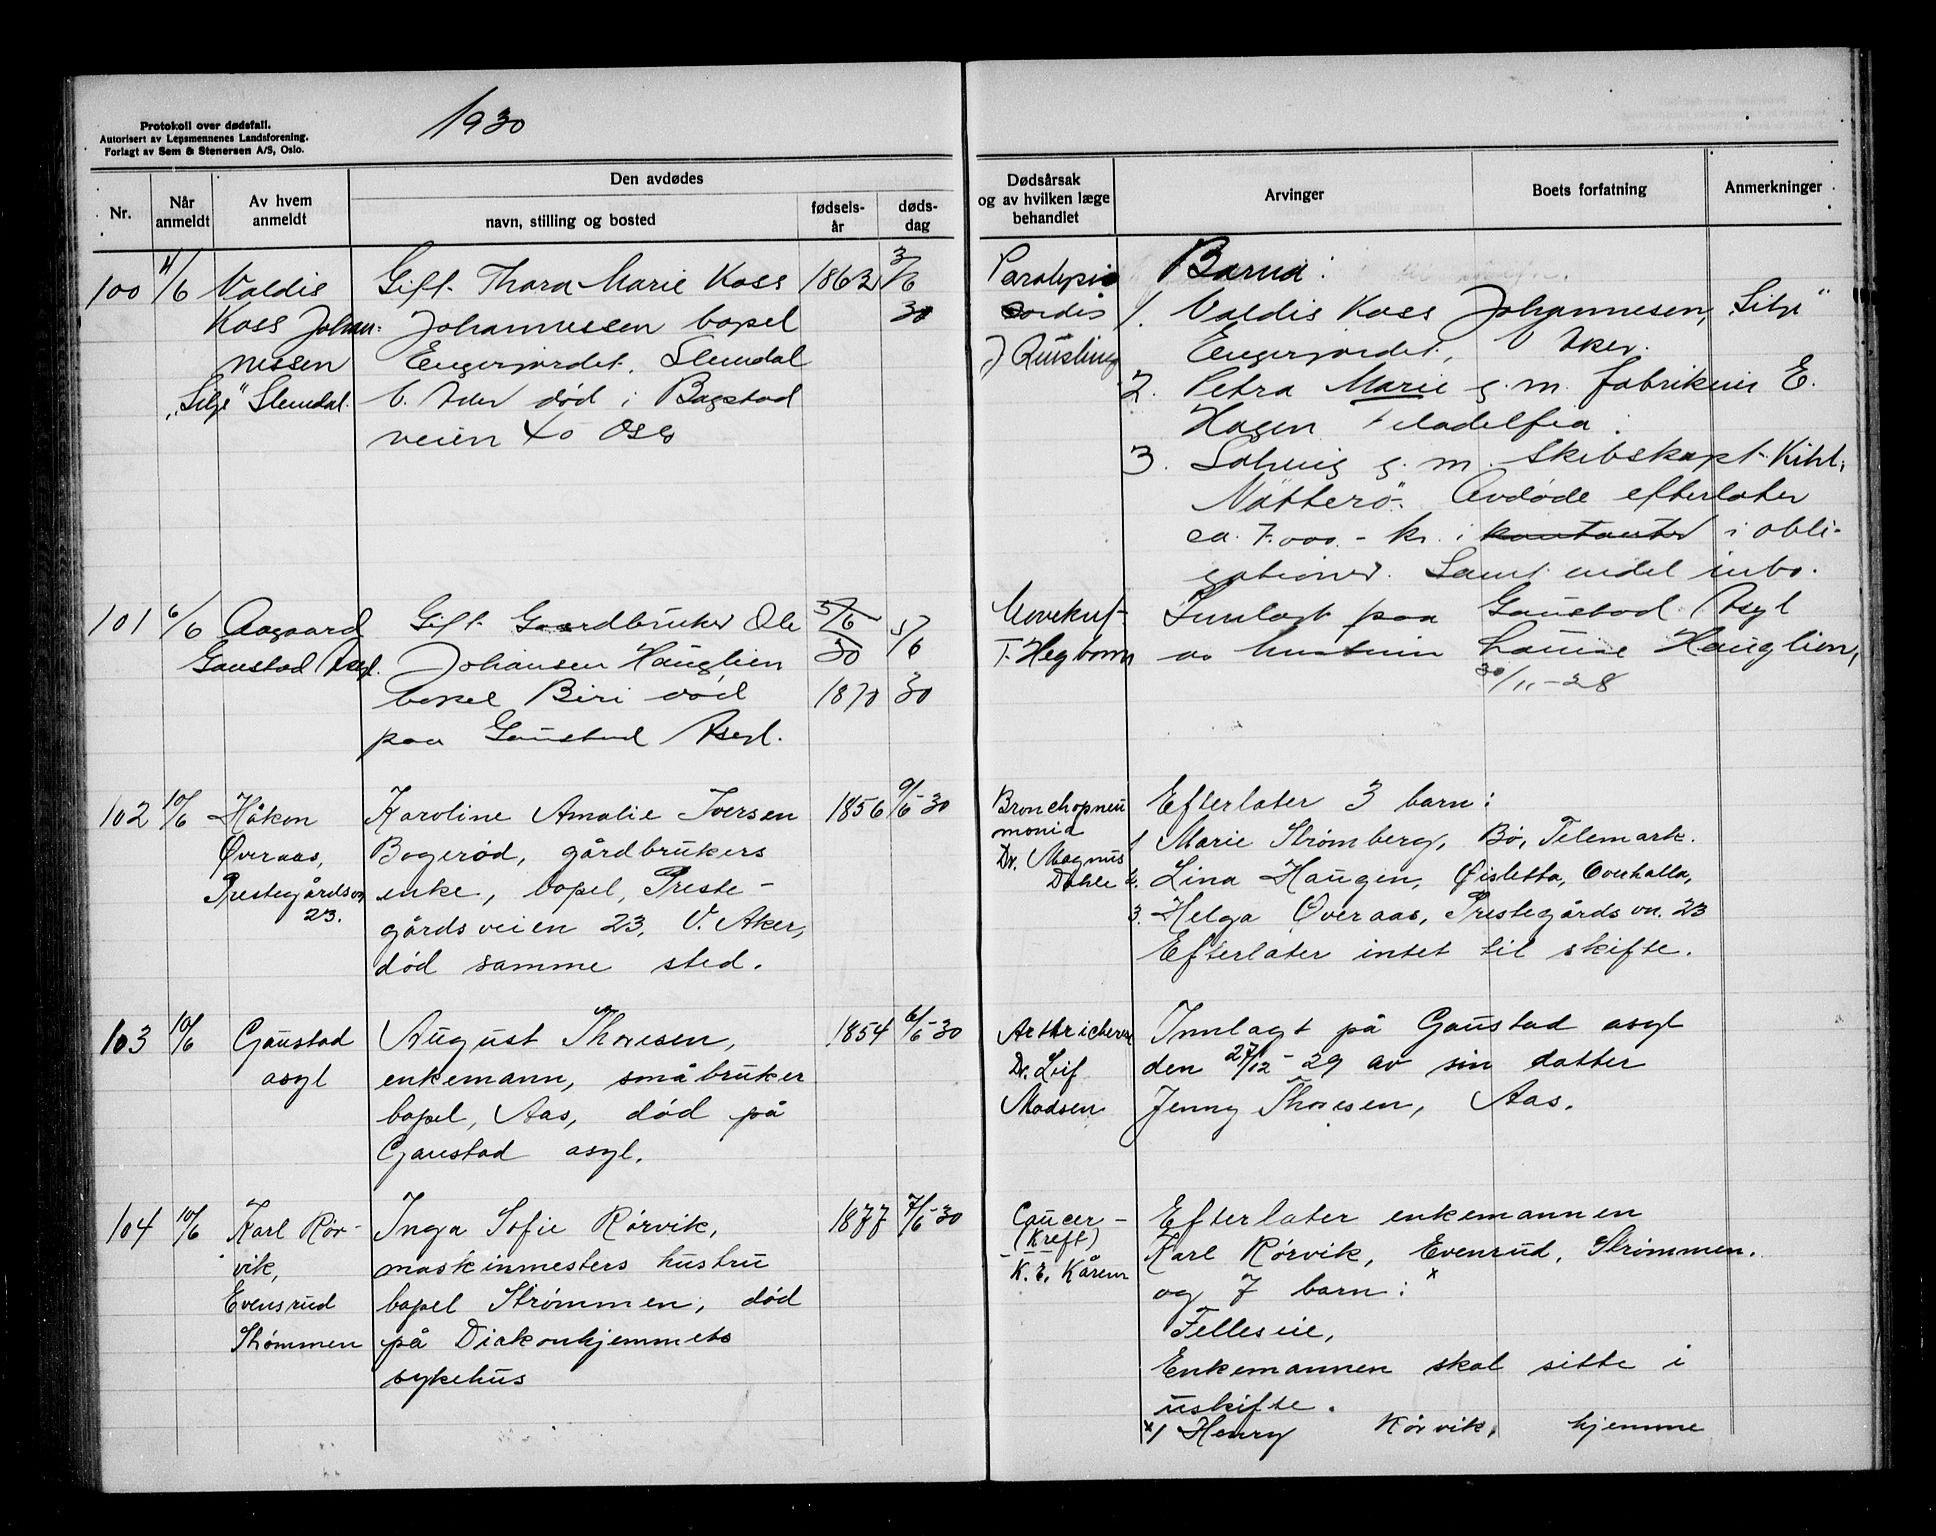 1930
Protokoll over dødsfall.
Autorisert av Lensmennenes Landsforening.
Forlagt av Sem & Stenersen A/S, Oslo.
Nr.
Når anmeldt
Av hvem anmeldt
Den avdødes
navn, stilling og bosted
fødsels-år
døds-dag
Dødsårsak og av hvilken læge behandlet
Arvinger
Boets forfatning
Anmerkninger
100
4/6
Valdis
Koss Johan-
nessen
"Silje" Slemdal.
Gift Thora Marie Koss
Johannessen bopel
Engerjordet, Slemdal
V. Aker død i Bogstad
veien 40 Oslo
1862
3/6
30
Paralysis
cordis
J Quisling
Barna:
1. Valdis Koss Johannesen, "Silje"
Engerjordet, V Aker.
2. Petra Marie g. m. fabrikeier E.
Hagen Filadelfia.
3. Solveig g. m. Skibskapt. Kihl,
Nötterö. Avdøde efterlater
ca. 7.000.- kr. i kontanter i obli-
gationer. Samt endel inbo.
101
6/6
Aagaard
Gaustad Asyl.
Gift Gaardbruker Ole
Johansen Hauglien
bopel Biri død
paa Gaustad Asyl.
5/6
30
1870
5/6
30
T. Hegbom
Innlagt paa Gaustad Asyl
av hustruen Louise Hauglien,
30/11-28
102
10/6
Håkon
Øveraas,
Prestegårdsvn
23.
Karoline Amalie Iversen
Bogerød, gårdbrukers
enke, bopel, Preste-
gårdsveien 23, V. Aker,
død samme sted.
1856
9/6-30
Bronchopneu
monia
Dr. Magnus
Dahle
Efterlater 3 barn:
1 Marie Strømberg, Bø, Telemark.
2. Lina Haugen, Øisletta, Overhalla,
3. Helga Øveraas, Prestegårdsvn. 23
Efterlater intet til skifte.
103
10/6
Gaustad
asyl
August Thoresen,
enkemann, småbruker
bopel, Aas, død på
Gaustad asyl.
1854
6/6-30
Dr. Leif
Madsen
Innlagt på Gaustad asyl
den 27/12-29 av sin datter
Jenny Thoresen, Aas.
104
10/6
Karl Rør-
vik,
Evensrud
Strømmen
Inga Sofie Rørvik,
maskinmesters hustru
bopel Strømmen, død
på Diakonhjemmets
sykehus
1877
7/6-30
Cancer -
(Kreft)
K. E. Kåren
Efterlater enkemannen
Karl Rørvik, Evenrud, Strømmen.
og 7 barn: x
Felleseie,
Enkemannen skal sitte i
uskifte.
x1 Henry Rørvik, hjemme